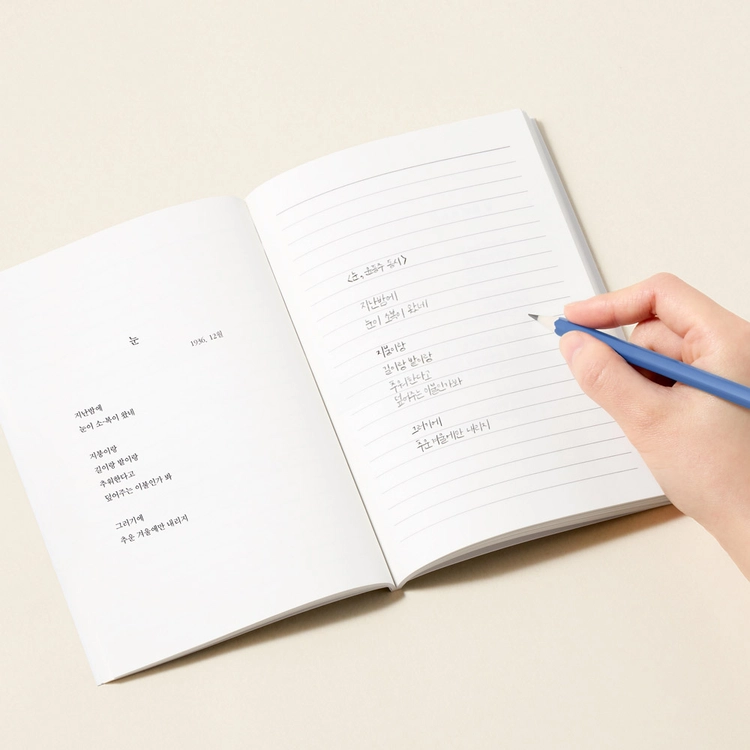 눈
1936. 12월
지난밤에
눈이 소-복이 왔네
지붕이랑
길이랑 밭이랑
추워한다고
덮어주는 이불인가 봐
그러기에
추운 겨울에만 내리지
<눈, 윤동주 동시>
지난밤에
눈이 소복이 왔네
지붕이랑
길이랑 밭이랑
추워한다고
덮어주는 이불인가봐
그러기에
추운 겨울에만 내리지